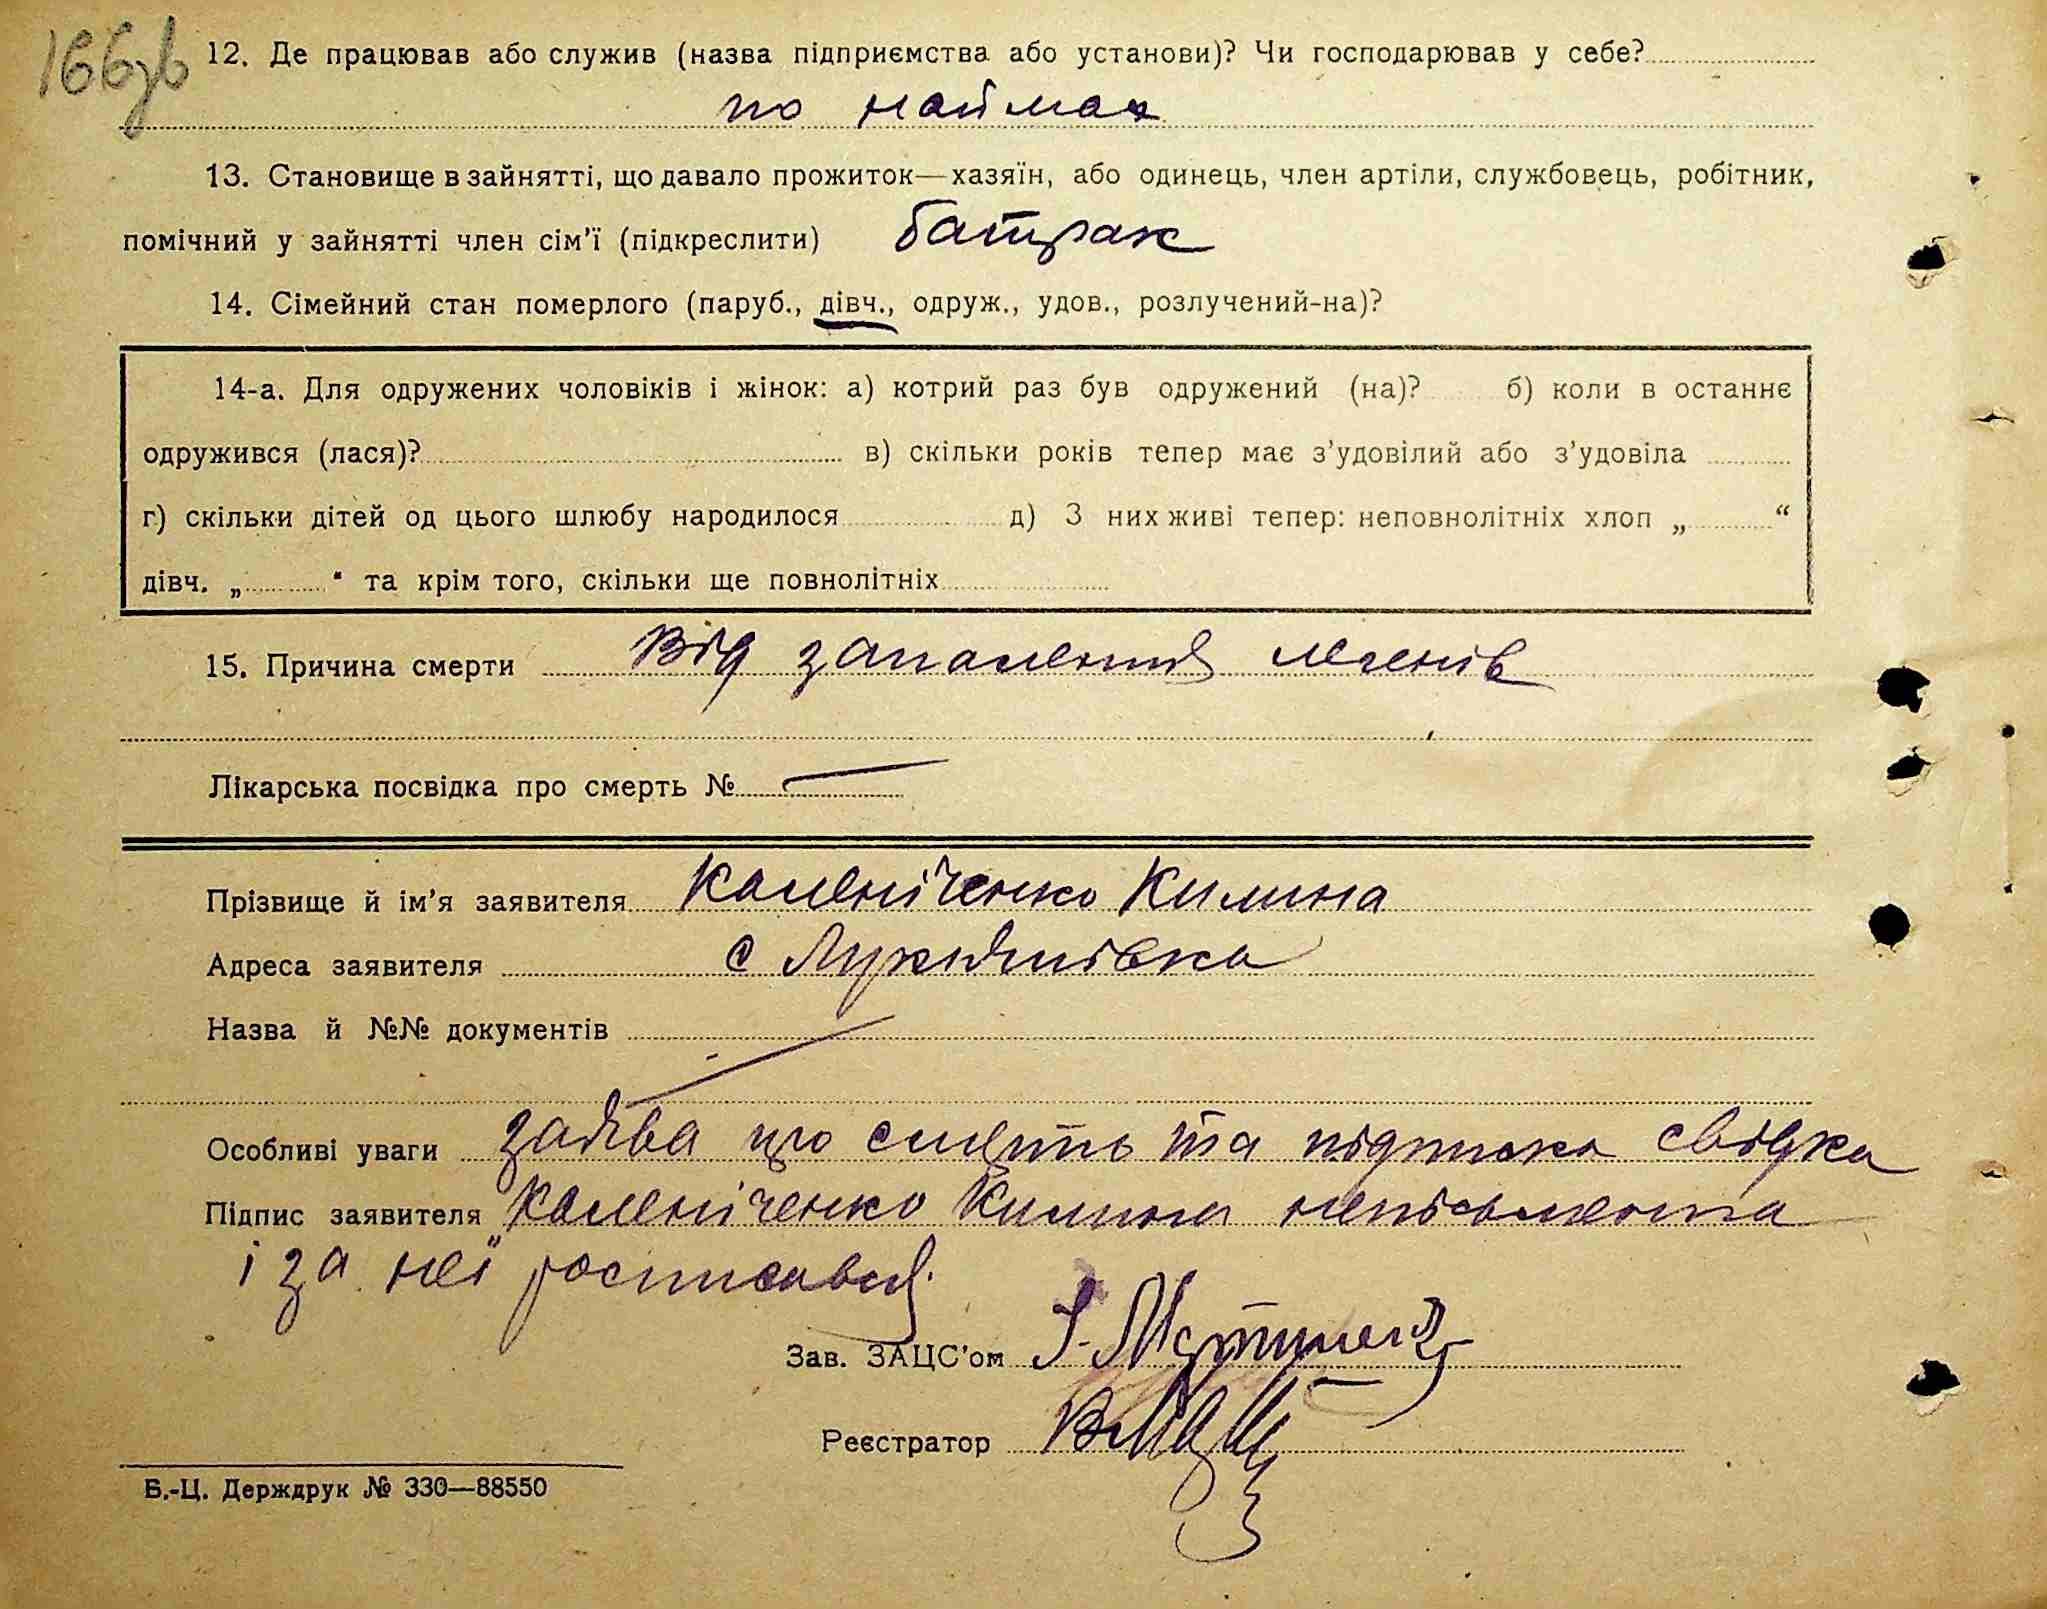 166зв 12. Де працював або служив (назва підприємства або установи)? Чи господарював у себе?
по наймах
13. Становище в зайнятті, що давало прожиток—хазяїн, або одинець, член артіли, службовець, робітник,
помічний у зайнятті член сім'ї (підкреслити) батрак
14. Сімейний стан померлого (паруб., дівч., одруж., удов., розлучений-на)?
14-а. Для одружених чоловіків і жінок: а) котрий раз був одружений (на)? б) коли в останнє
одружився (лася)? в) скільки років тепер має з'удовілий або з'удовіла
г) скільки дітей од цього шлюбу народилося д) З них живі тепер: неповнолітніх хлоп „ “
дівч. „ “ та крім того, скільки ще повнолітніх
15. Причина смерти Від запалення легенів
Лікарська посвідка про смерть № —
Прізвище й ім'я заявителя Каленіченко Килина
Адреса заявителя с Лукянівка
Назва й №№ документів
Особливі уваги заява про смерть та підписка свідка
Підпис заявителя Каленіченко Килина неписьменна
і за неї росписався.
Зав. ЗАЦС'ом
Реєстратор
Б.-Ц. Держдрук № 330—88550